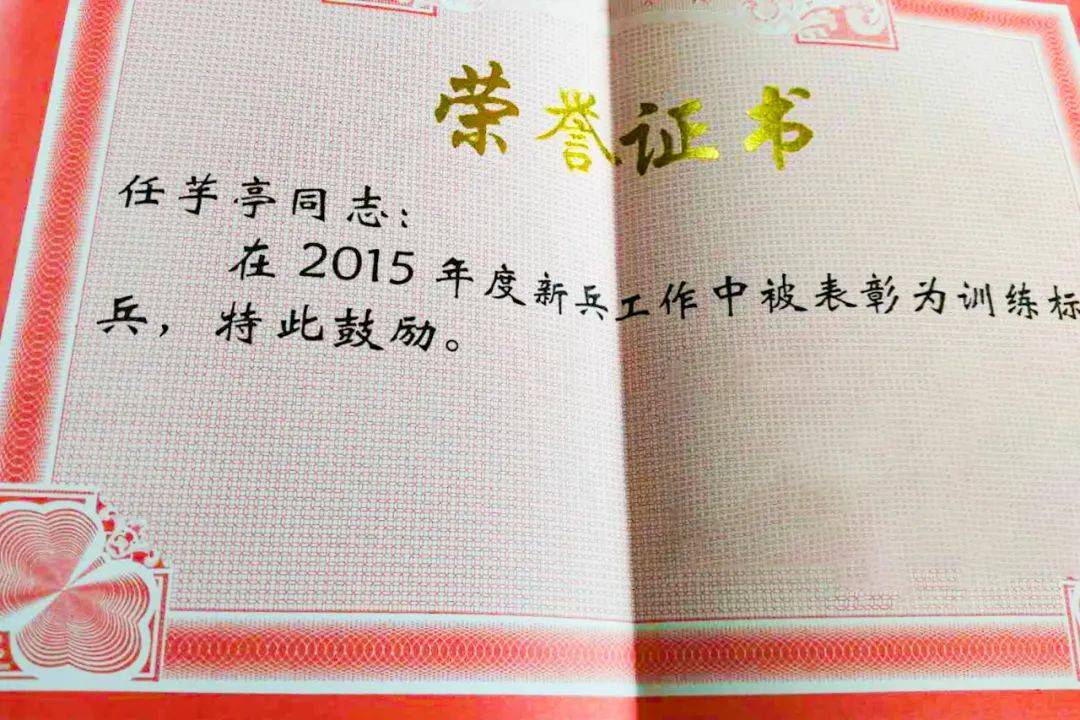 荣誉证书
任芋亭同志：
在 2015 年度新兵工作中被表彰为训练标
兵，特此鼓励。